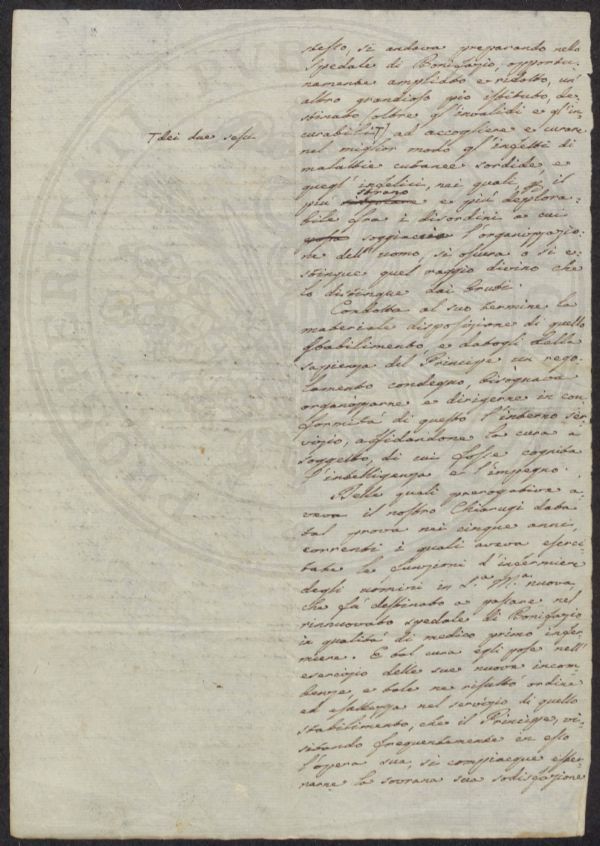 stesso, si andava preparando nello
Spedale di Bonifazio, opportu-
namente ampliato e ridotto, un'
altro grandioso pio istituto, de-
stinato (oltre gl'invalidi e gl'in-
curabili T) ad accogliere e curare
T dei due sessi
nel miglior modo gl'infetti di
malattie cutanee sordide, e
quegl'infelici, nei quali, p il
strano
più e più deplora-
bile fra i disordini a cui
soggiacia l'organizzazio-
ne dell'uomo, si oscura o si e-
stingue quel raggio divino che
lo distingue dai bruti.
Condotta al suo termine la
materiale disposizione di quello
stabilimento, e datogli dalla
sapienza del Principe un rego-
lamento condegno, bisognava
organizzarne e dirigerne in con-
formità di questo l'interno ser-
vizio, affidandone la cura a
soggetto, di cui fosse cognita
l'intelligenza e l'impegno.
Delle quali prerogative a-
veva il nostro Chiarugi data
tal prova nei cinque anni,
correnti i quali aveva eserci-
tate le funzioni d'infermiere
degli uomini in S.a M.a nuova,
che fù destinato a passare nel
rinnuovato spedale di Bonifazio
in qualità di medico primo infer-
miere. E tal cura egli pose nell'
esercizio delle sue nuove incom-
benze, e tale ne risultò ordine
ed esattezza nel servizio di quello
stabilimento, che il Principe, vi-
sitando frequentemente in esso
l'opera sua, si compiacque ester-
narne la sovrana sua sodisfazione